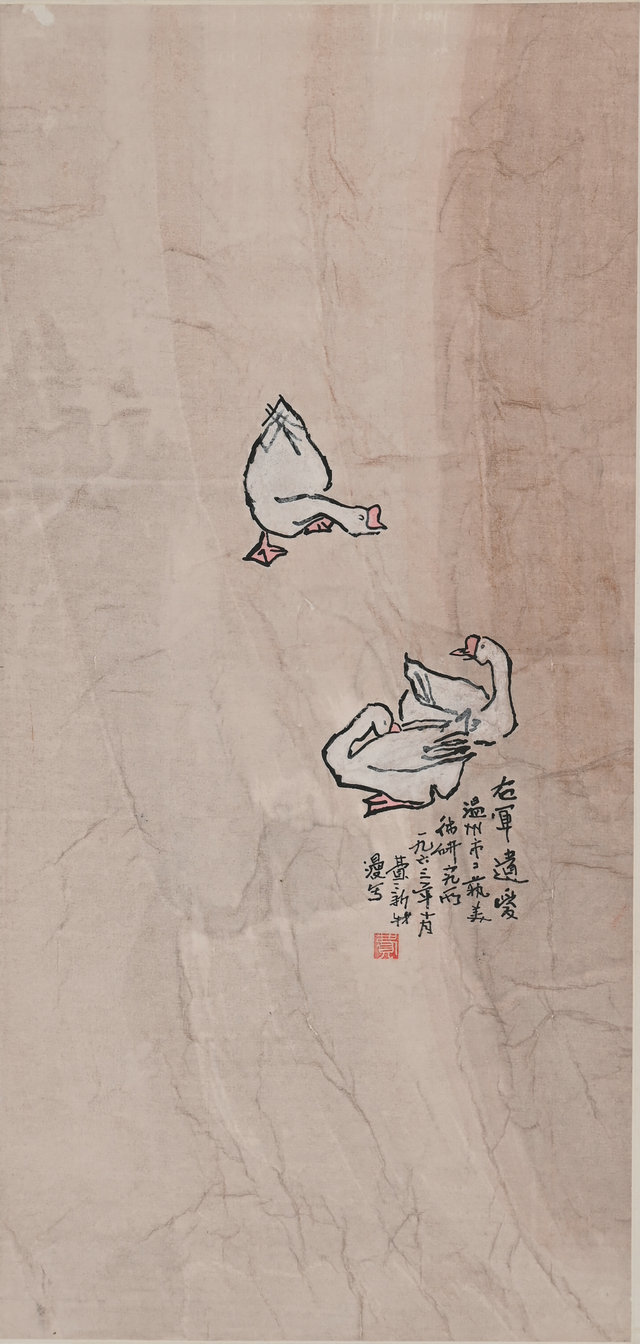 右軍遺愛
温州市工藝美
術研究所
一九六三年十月
費新我
漫写